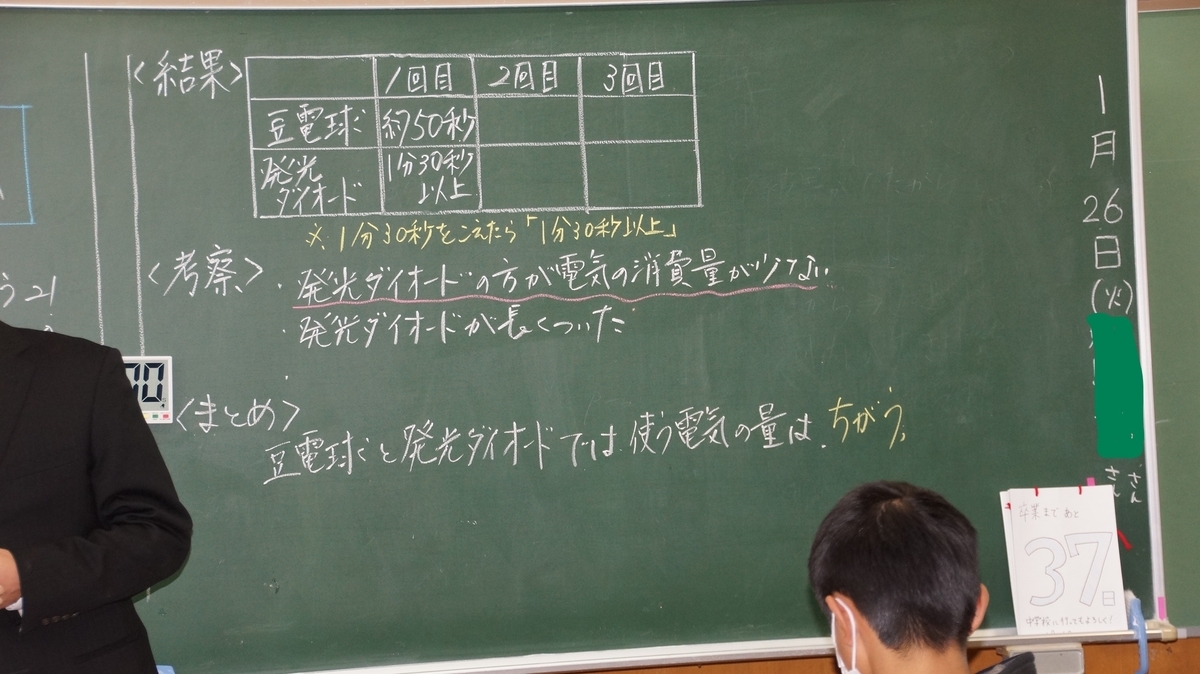 <結果>
1回目 2回目 3回目
豆電球 約50秒
発光ダイオード 1分30秒以上
※1分30秒をこえたら「1分30秒以上」
<考察>
・発光ダイオードの方が電気の消費量が少ない
・発光ダイオードが長くついた
<まとめ>
豆電球と発光ダイオードでは使う電気の量は、ちがう。
1月26日(火)
さん
さん
卒業まであと
37日
中学校に行ってもよろしく!
う21